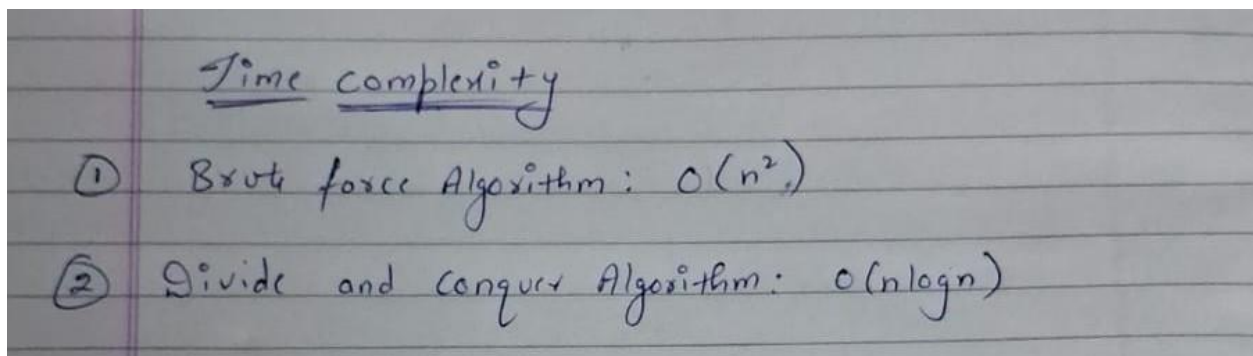 Time complexity
① Brute force Algorithm: O(n²)
② Divide and Conquer Algorithm: O(nlogn)